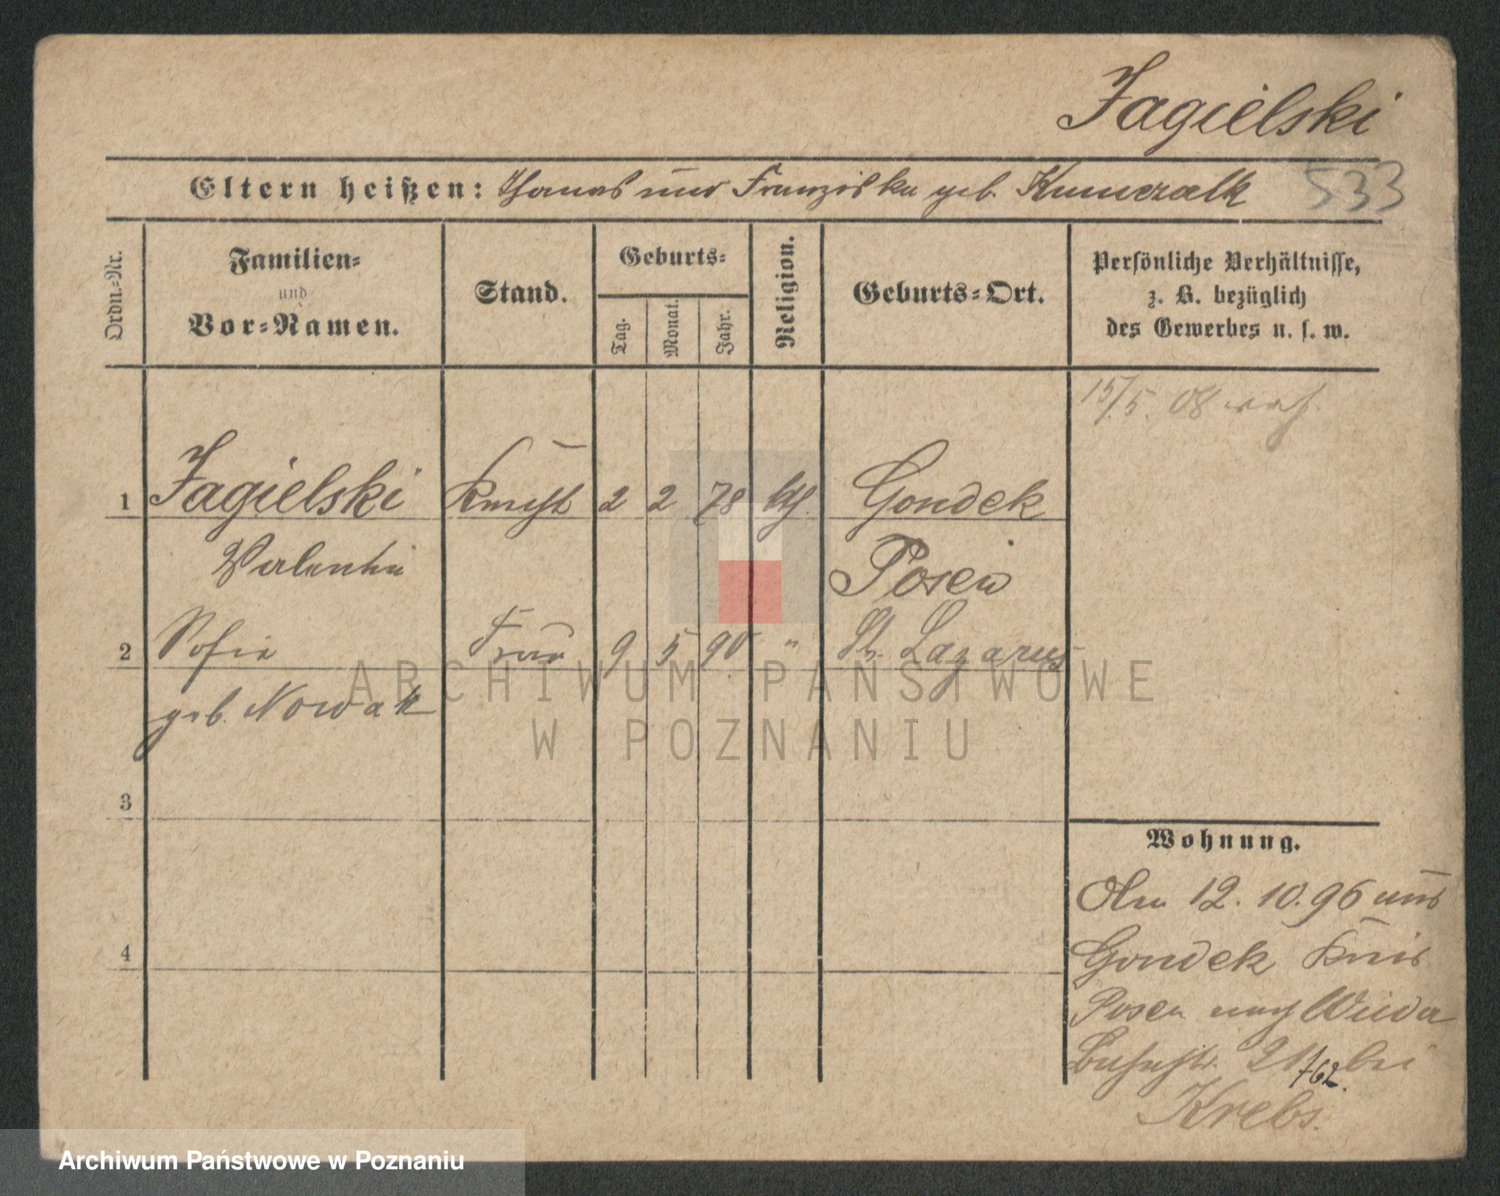 Jagielski
Eltern heißen: Thomas und Franziska geb.
533
Ordn.-Nr.
Familien-
und
Vor-Namen.
Stand.
Geburts-
Tag.
Monat.
Jahr.
Religion.
Geburts-Ort.
Persönliche Verhältnisse,
z. B. bezüglich
des Gewerbes u. s. w.
15/5. 08
1 Jagielski Knecht 2 2 78 kth. Gondek
Valentin Posen
2 Sofie Frau 9 5 90 " St. Lazarus
geb. Nowak
3
4
Wohnung.
Am 12. 10. 96 aus
Gondek Kreis
Posen nach Wilda
bei
762.
Krebs.
ARCHIWUM PAŃSTWOWE
W POZNANIU
Archiwum Państwowe w Poznaniu